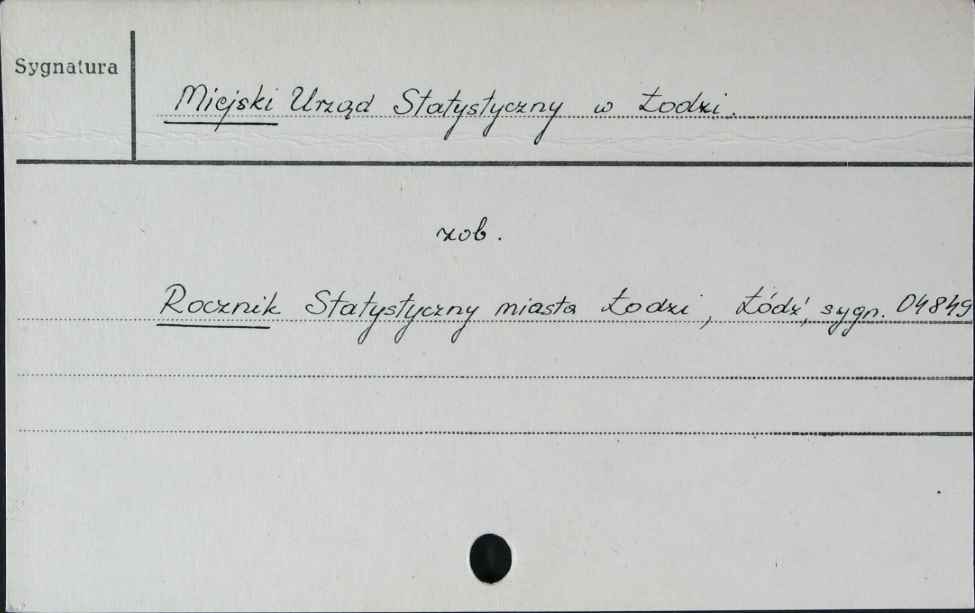 Sygnatura
Miejski Urząd Statystyczny w Łodzi.
zob.
Rocznik Statystyczny miasta Łodzi, Łódź, sygn. 04849